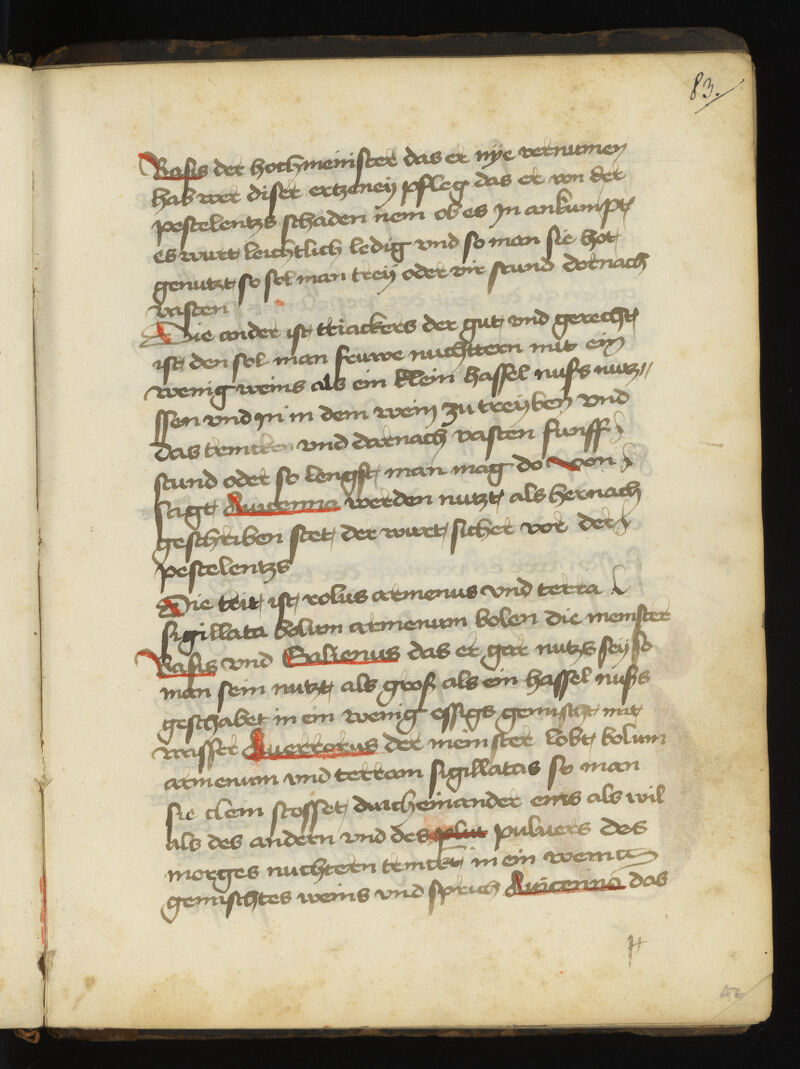 83.
Rasis der hochmeinister das er nye vernumen
hab wer diser ertzeney pfleg das er von der
pestelentzs schaden nem ob es in ankumpt
es wurt leichtlich ledig vnd so man sie hot
genutzt so sol man trey oder vir stund dornach
vasten
Die ander ist triackers der gut vnd gerecht
ist den sol man fruwe nuchttern mit ein
wenig weins als ein klein hassel nuss nutz//
ssen vnd in in dem wein zu treyben vnd
das trincken vnd darnach vasten funff
stund oder so lengst man mag do von
sagt Auicenna werden nutzt als hernach
geschriben stet der wurt sicher vor der
pestelentzs
Die trit ist rolus armenus vnd terra
sigillata bolum armenum bolen die meinster
Rasis vnd Galienus das er gar nutzs sey so
man sein nutzt als groß als ein hassel nuss
geschabet in ein wenig essigs gemischt mit
wasser Auerrorus der meinster lobt bolum
armenum vnd terram sigillatas so man
sie clein stosset durcheinander eins als vil
als des andern vnd des plut puluers des
morges nuchtern trinckt in ein wenig
gemischtes weins vnd sprich Auicenna das